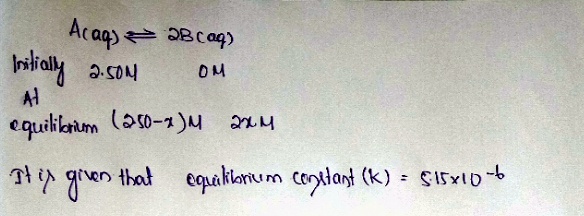 A(aq) ⇌ 2B(aq)
Initially 2.50M 0M
At
equilibrium (250-x)M 2xM
It is given that equilibrium constant (K) = 5.15x10-6